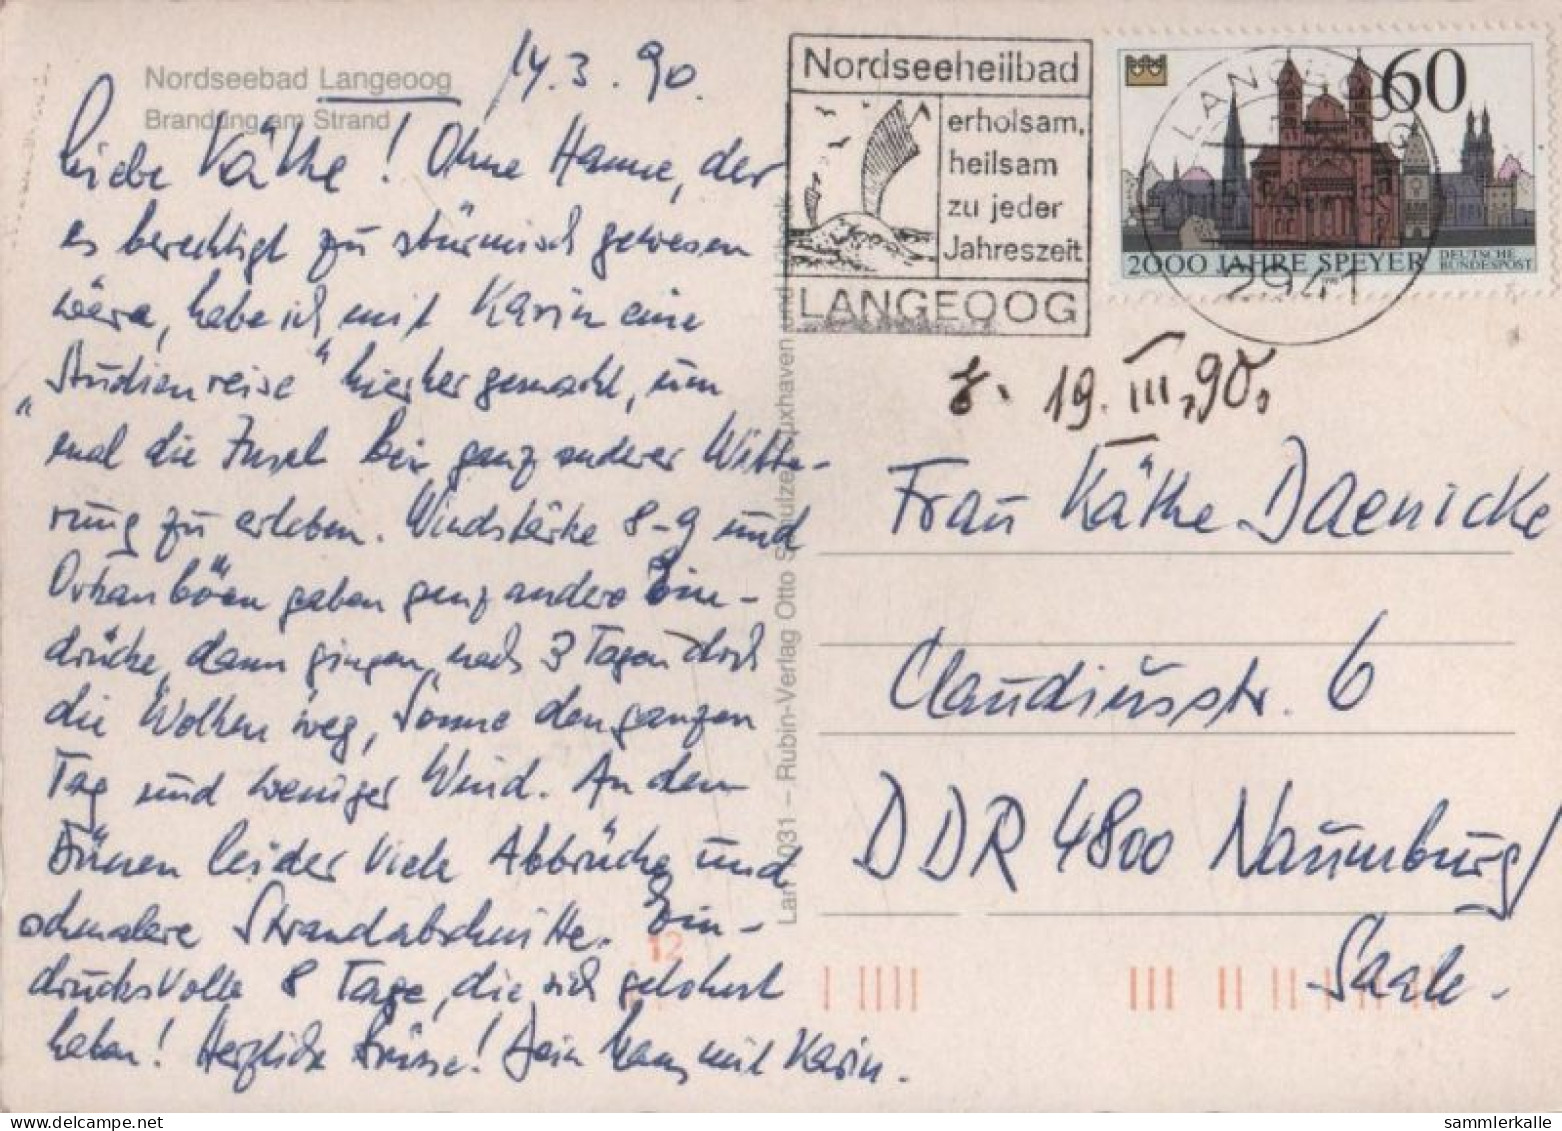 Nordseebad Langeoog
Brandung am Strand
14.3.90.
Liebe Käthe! Ohne Hanne, der
es berechtigt zu stürmisch gewesen
wäre, habe ich mit Karin eine
„Studienreise" hierher gemacht, um
mal die Insel bei ganz anderer Witte-
rung zu erleben. Windstärke 8-9 und
Orkanböen gaben ganz andere Ein-
drücke, dann gingen nach 3 Tagen doch
die Wolken weg, Sonne den ganzen
Tag und weniger Wind. An den
Dünen leider viele Abbrüche und
schmalere Strandabschnitte. Ein-
drucksvolle 8 Tage, die sich gelohnt
haben! Herzliche Grüsse! Dein Hans mit Karin.
Lan 031 – Rubin-Verlag Otto Schulze Cuxhaven und
Nordseeheilbad
erholsam,
heilsam
zu jeder
Jahreszeit
LANGEOOG
60
2000 JAHRE SPEYER
DEUTSCHE
BUNDESPOST
LANGEOOG
2941
19. III. 90.
Frau Käthe Daenicke
Claudiusstr. 6
DDR 4800 Naumburg/
Saale.
12
sammlerkalle